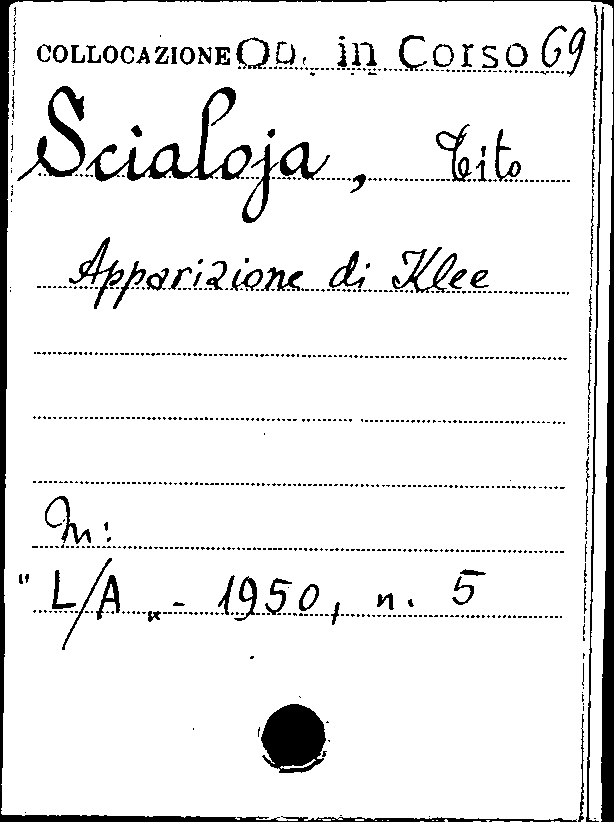 COLLOCAZIONE OD. in Corso 69
Scialoja, Tito
Apparizione di Klee
In:
"L/A„ - 1950, n. 5